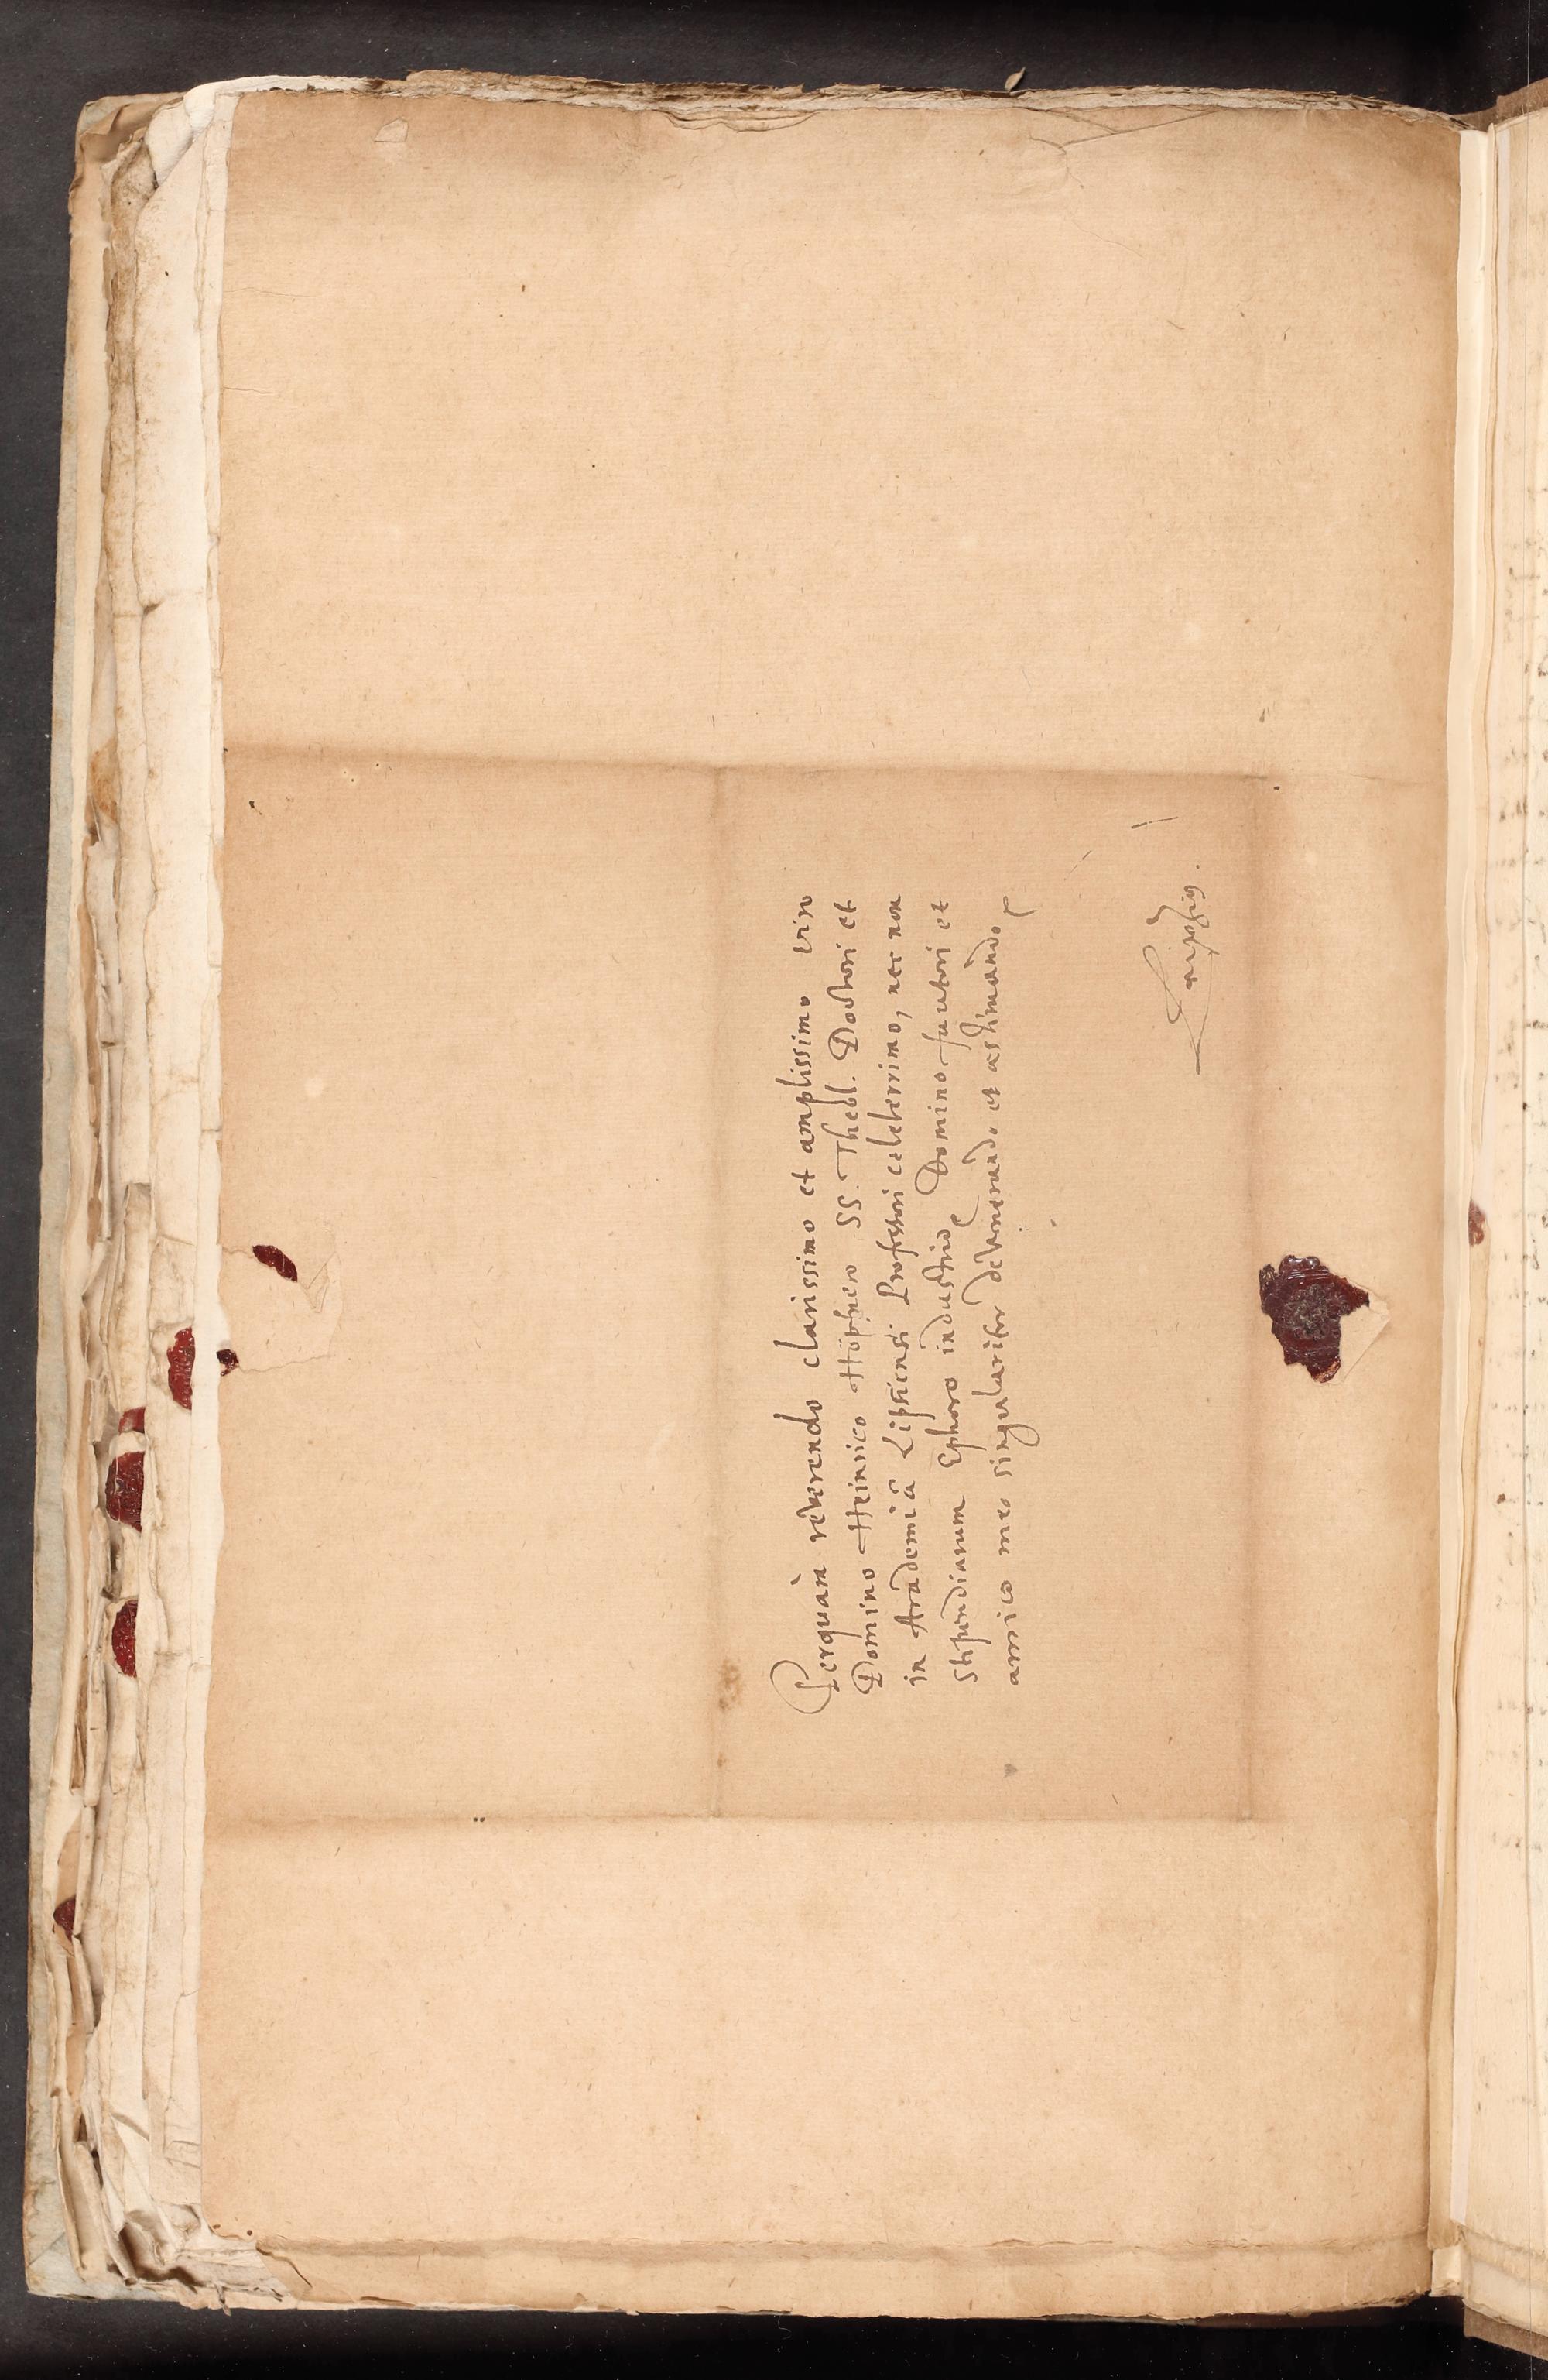 Perquàm reverendo clarissimo et amplissimo viro
Domino Heinrico Höpfnero SS. Theol. Doctori et
in Academiâ Lipsiensi Professori celeberrimo, nec non
Stipendianum Ephoro industrio, Domino fautori et
amico meo singulariter devenerando et æstimando,
Leipzig.